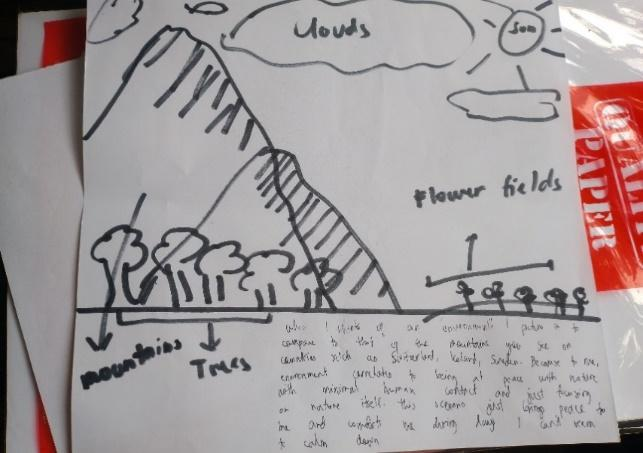 Clouds
Sun
Flower fields
mountains
Trees
when I think of an environment I picture it to
compare to that of the mountains you see on
countries such as Switzerland, Iceland, Sweden. Because to me,
environment correlates to being at peace with nature
with minimal human contact and just focusing
on nature itself. this scenario just brings peace to
me and comforts me during days I can't seem
to calm down
PAPER